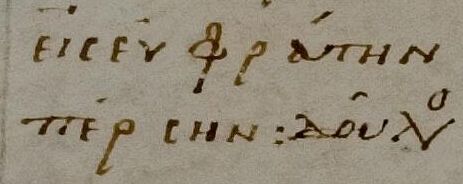 εἰς εὐφράτην
πέρσην : δοῦλο